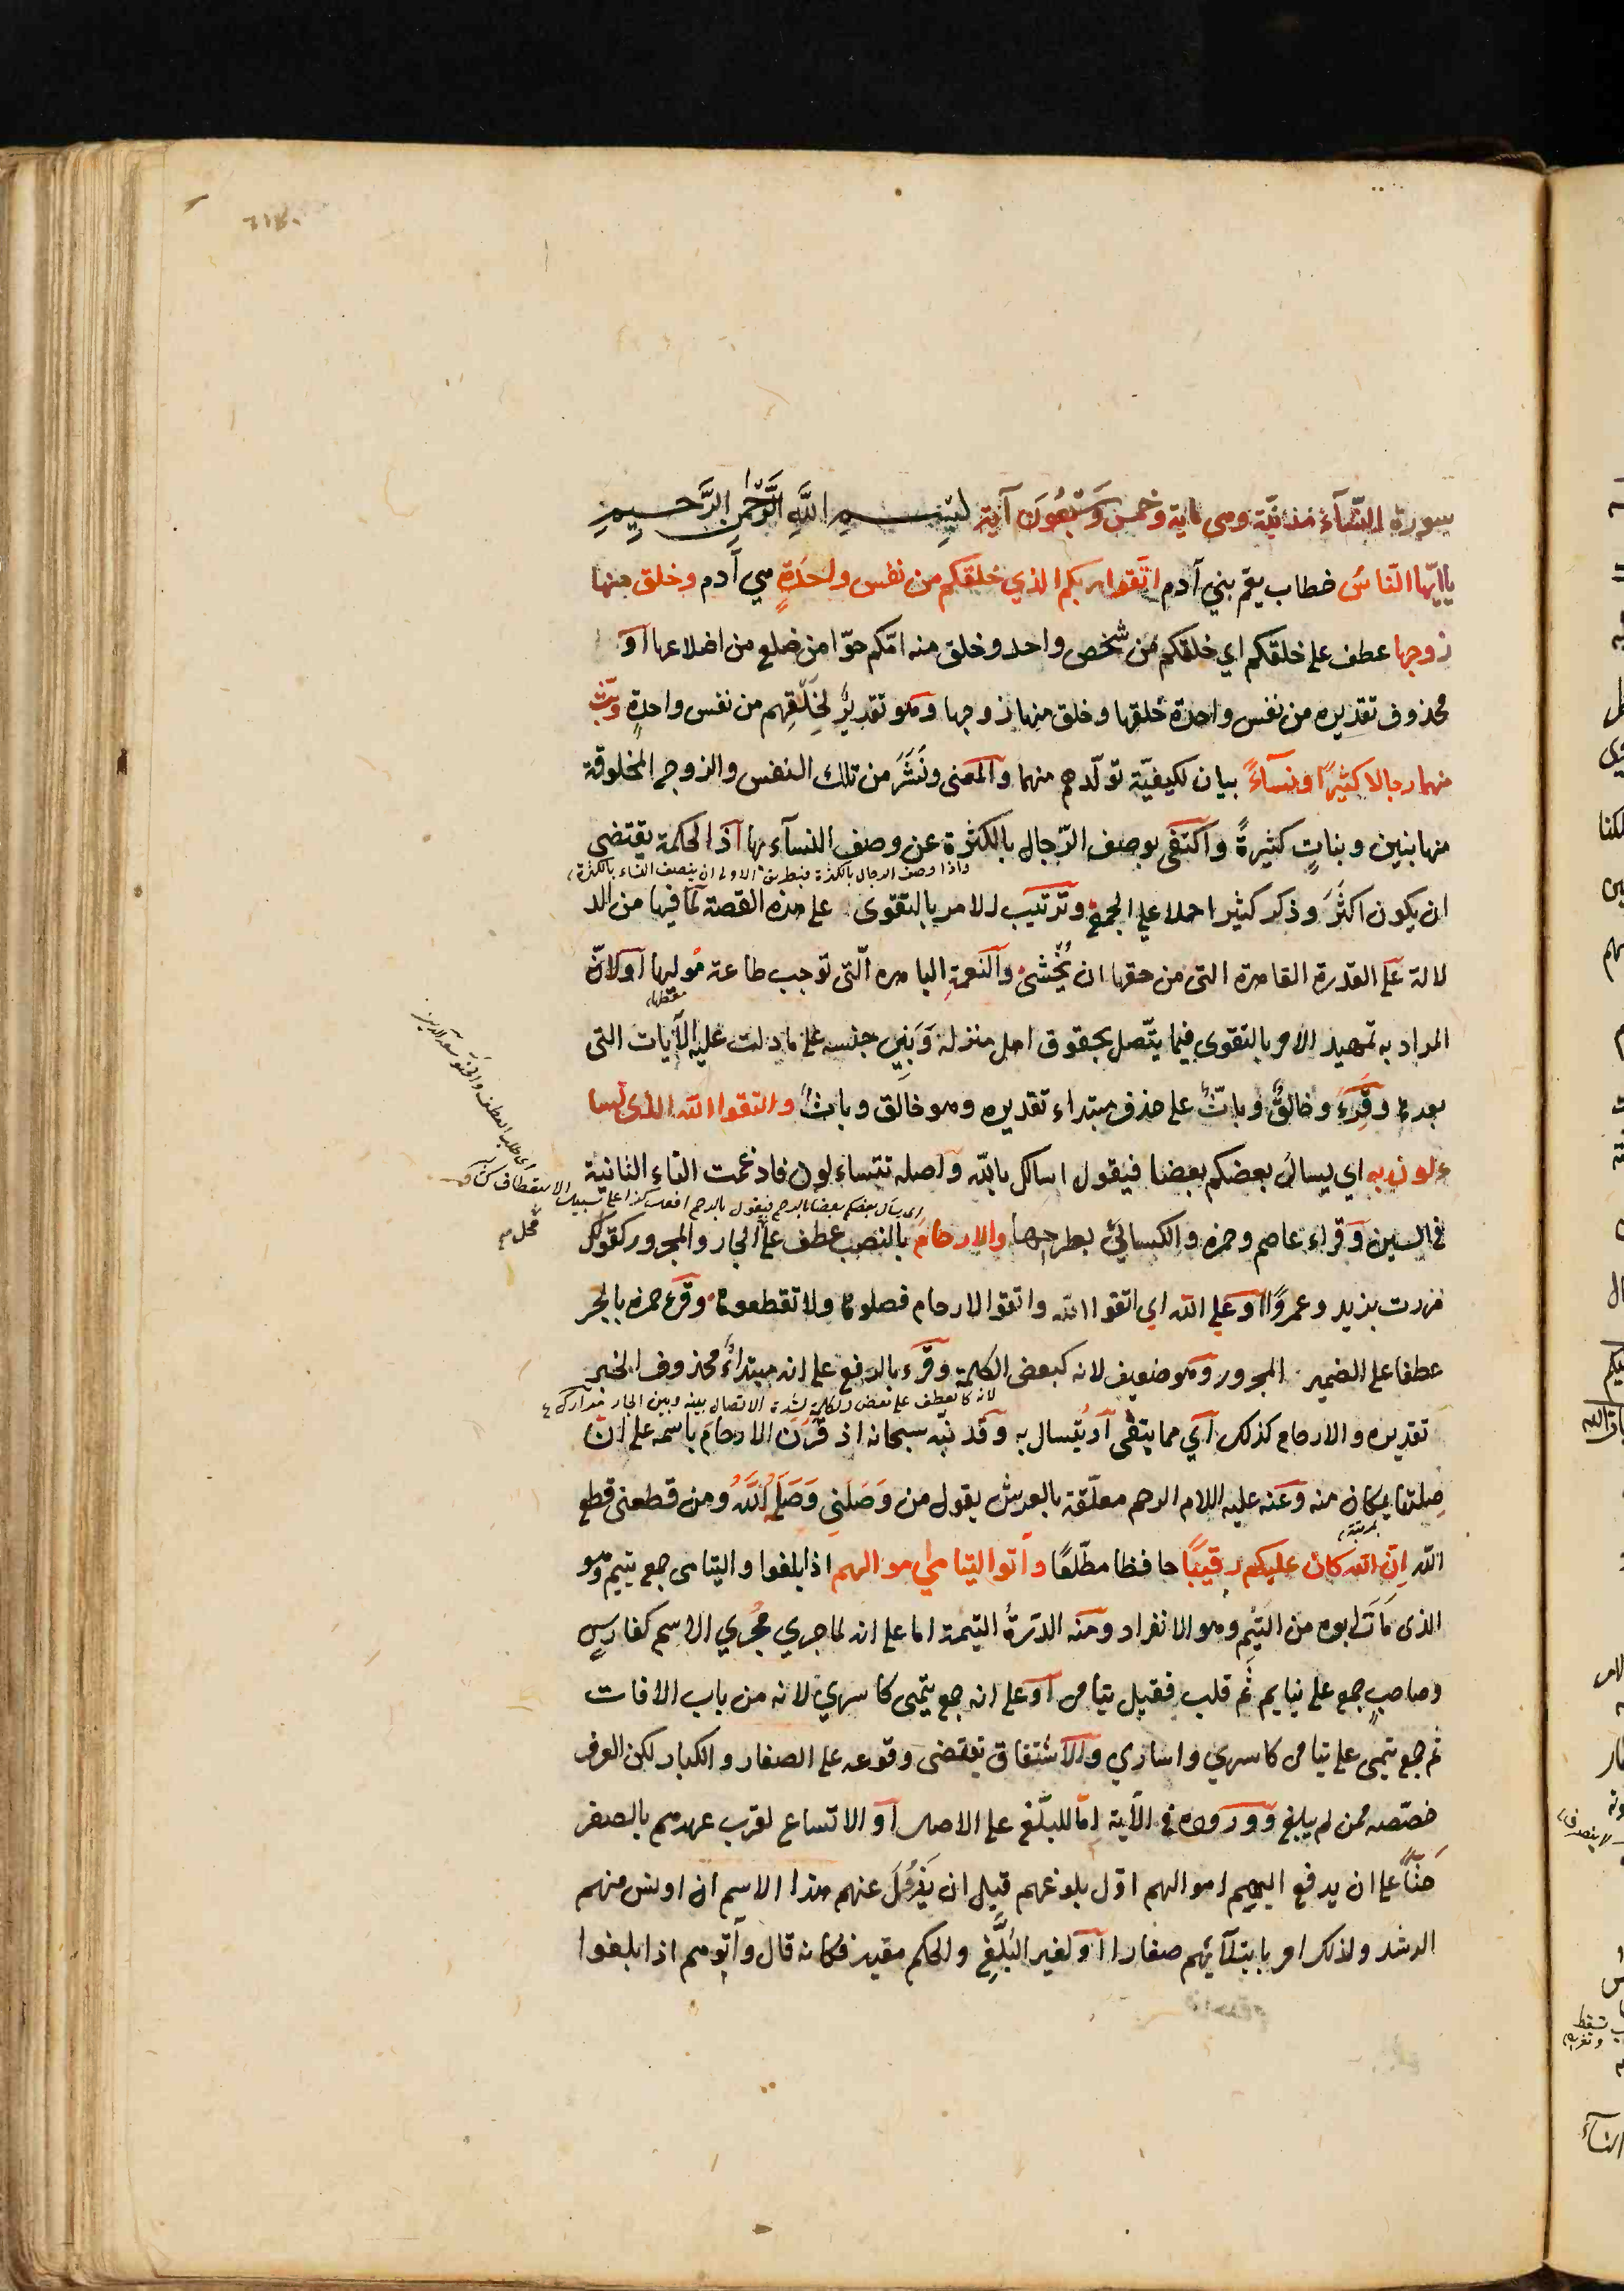 سورة النسآء مدنيّة وهى ماية وخمس وسَبْعُونَ آية بسم الله الرَّحْمَنِ الرَّحيم
ياايّها النّاسُ خطاب يعم بني آدم اتَّقوا ربكم الذي خلقكم من نفس واحدةٍ هي آدم وخلق منها
زوجها عطف على خلقكم اي خلقكم من شخص واحد وخلق منه امّكم حوّا من ضلع من اضلاعها او
محذوف تقديره من نفس واحدة خلقها وخلق منها زوجها وهو تقديرٌ لخَلْقِهم من نفس واحدةٍ وبثّ
منهما رجالا كثيرًا ونسآءً بيان لكيفيّة تولّدهم منهما والمعنى ونَشَرَ من تلك النفس والزوج المخلوقة
منها بنين وبناتٍ كثيرةً واكتفى بوصف الرّجال بالكثرة عن وصف النسآء بها اذ الحكمة يقتضى
واذا وصف الرجال بالكثرة فبطريق الاولى ان يتصف النساء بالكثرة
ان يكون اكثَرَ وذكر كثيرا حملا علي الجمع وترتيب الامر بالتقوى على هذه القصة لمّا فيها من الد
لالة على القدرة القاهرة التى من حقها ان يُخْشىٰ والنعمةِ الباهره الّتى توجب طاعة مُوليها او لانّ
معطيها
المراد به تمهيد الامر بالتقوى فيما يتّصل بحقوق اهل منزله وَبَنِي جنسه على ما دلت عليه الآيات التى
بعدها وقُرِءَ وخالقٌ وباثٌّ على حذف مبتداء تقديره وهو خالق وباثٌ واتقوا الله الذى تسا
ءلون به اي يسالُ بعضكم بعضا فيقول اسالك بالله واصله تتساءلون فادغمت التاء الثانية
اى يسال بعضكم بعضا بالرحم فيقول بالرحم افعل كذا على سبيل الاستعطاف
فى السين وقراء عاصم وحمزه والكسائيُ بطرحها والارحامَ بالنصب عطف على الجار والمجرور كقولك
مررت بزيد وعمروًا او على الله اي اتقوا الله واتقوا الارحام فصلوها ولا تقطعوها وقرء حمزه بالجر
عطفا على الضمير المجرور وهو ضعيف لانه كبعض الكلمة وقُرء بالرفع على انه مبتداءٌ محذوف الخبر
لانه كالعطف على بعض الكلمة لشدة الاتصال بينه وبين الجار
تقديره والارحام كذلك اي مما يتقى او يُتسال به وقد نبّه سبحانه اذ قَرَن الارحامَ باسمه على انّ
صِلتها بمكان منه وعنه عليه السلام الرحم معلّقة بالعرش يقول من وَصَلَنِي وَصَلَهُ اللهُ ومن قطعنى قطع
الله اِنّ الله كان عليكم رقيبًا حافظا مطّلعًا وآتوا اليتامي اموالهم اذا بلغوا واليتامى جمع يتيم وهو
الذى مَاتَ ابوه من اليُتمِ وهو الانفراد ومنه الدّرةُ اليتيمة اما على انه لما جري مَجْري الاسم كفارسٍ
وصاحبٍ جمع على يتايم ثُم قلب فقيل يتامى او على انه جمع يَتمى كاسري لانه من باب الافات
ثم جمع يَتْمى على يتامى كاسري واساري والاشتقاق يقتضى وقوعه على الصغار والكبار لكن العرف
خصّصه بمن لم يبلغ وورودُه فى الآية إمّا للبلّغ على الاصل او الاتساع لقرب عهدهم بالصغر
حَثاً على ان يدفع اليهم اموالهم اوّل بلوغهم قبل ان يَزُولَ عنهم هذا الاسم ان اونس منهم
الرشد ولذلك امر بابتلآئهم صغارا او لغير البُلَّغِ والحكم مقيد فكانه قال وآتوهم اذا بلغوا